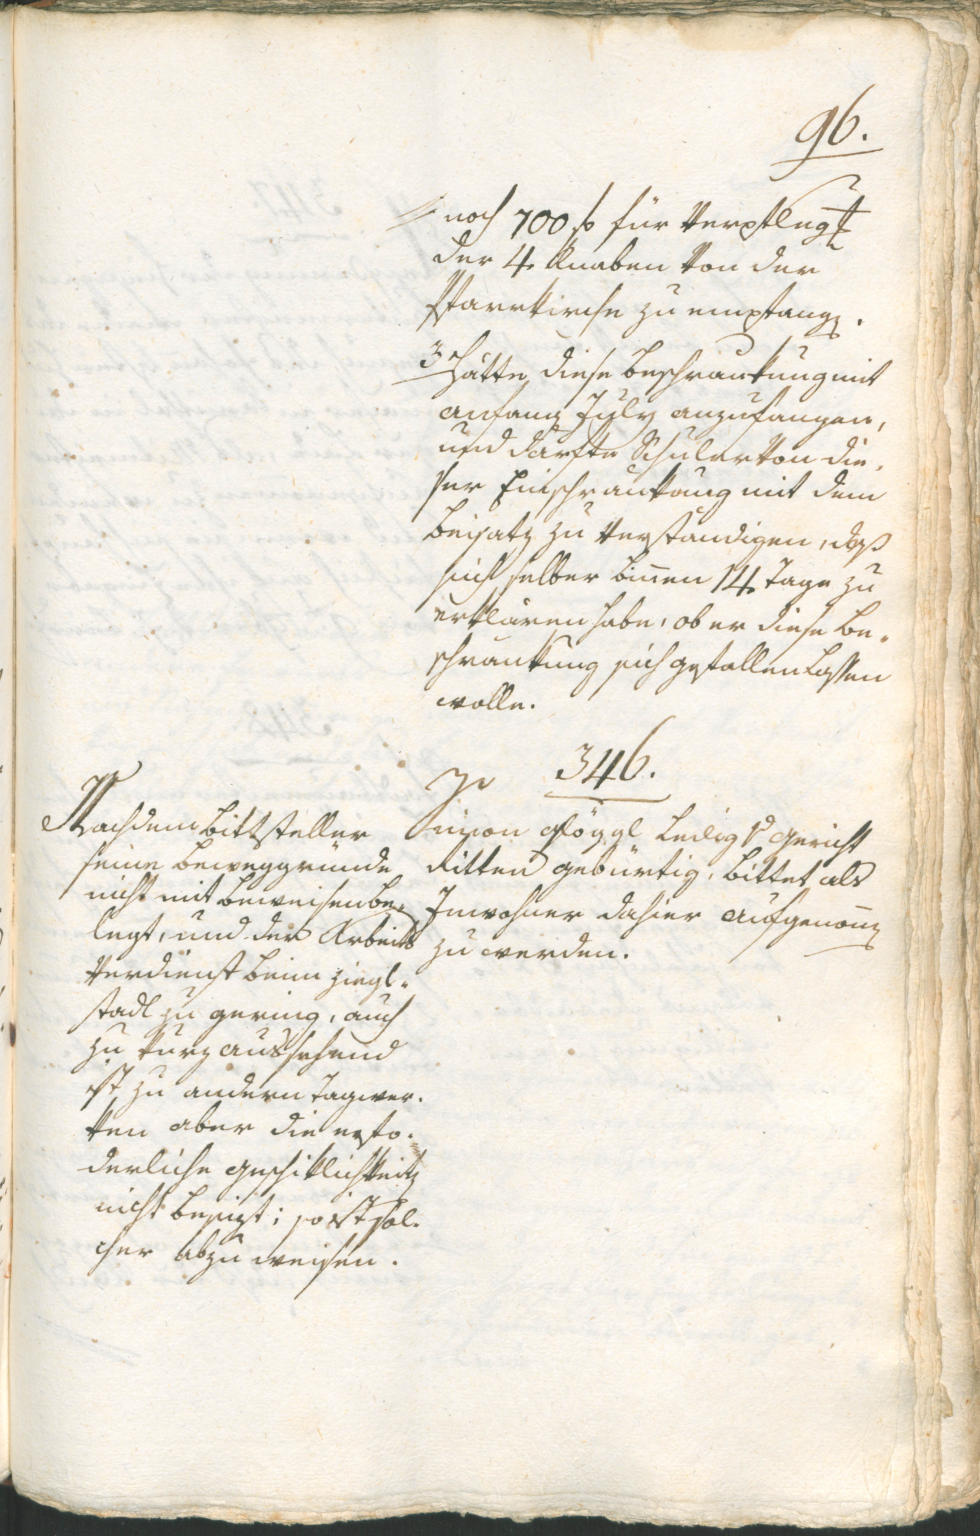 96.
noch 700 f für Verpflegung
der 4 Knaben von der
Pfarrkirche zu empfangen.
3 Hätte diese Beschrankung mit
anfang July anzufangen,
und darfte Schuler von die¬
ser Einschrankung mit dem
beisatz zu verstandigen, daß
sich selber binnen 14 Tage zu
erklären habe, ob er diese Be¬
schrankung sich gefallen lassen
wolle.
346.
Nachdem Bittsteller
seine beweggründe
nicht mit beweisen be¬
legt, und der Arbeits
Verdienst beim Ziegl¬
stadl zu gering, auch
zu kurz aussehend
ist, zu andern Tagwer¬
ken aber die erfo¬
derliche geschiklichkeit
nicht besizt; so ist sol¬
cher abzuweisen.
Simon Glöggl ledig Gericht
Ritten gebürtig, bittet als
Inwohner dahier aufgenommen
zu werden.